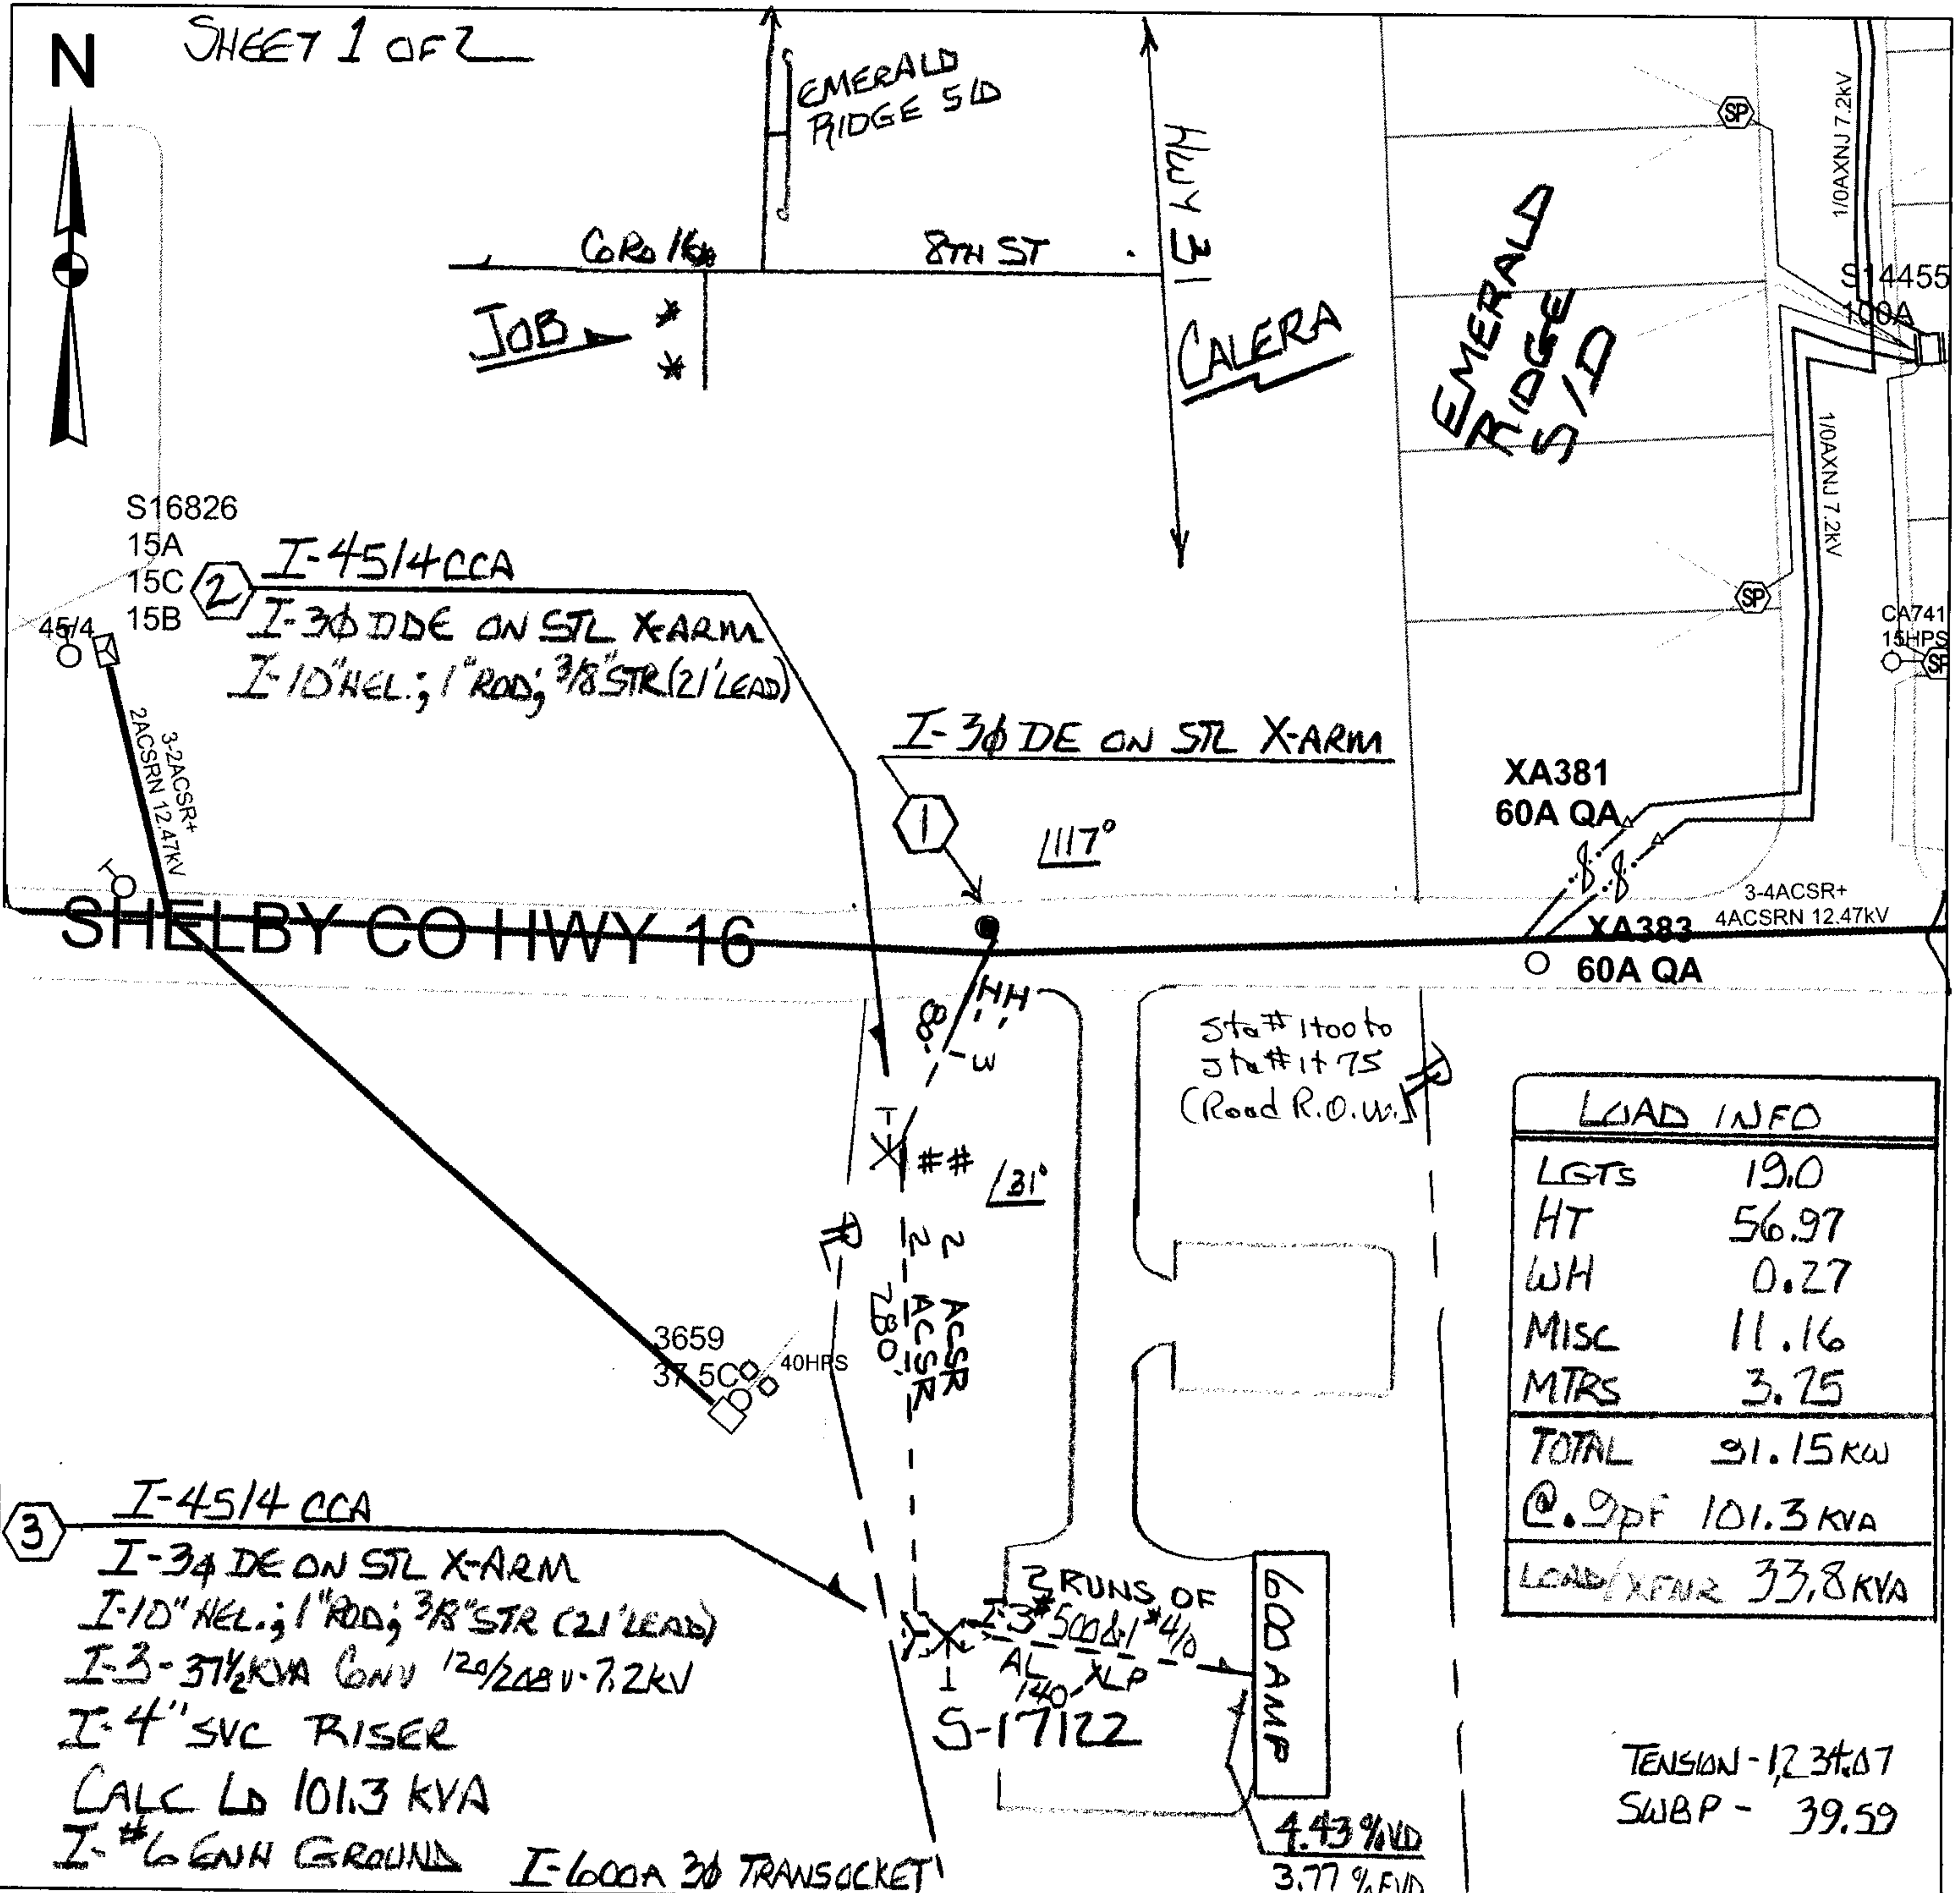 N
SHEET 1 OF 2
EMERALD
RIDGE S/D
HWY 31
CO RD 16
8TH ST
JOB
CALERA
EMERALD
RIDGE
S/D
SP
1/0AXNJ 7.2kV
S14455
100A
1/0AXNJ 7.2kV
SP
CA741
15HPS
SP
S16826
15A
15C
15B
45/4
3-2ACSR+
2ACSRN 12.47kV
2
I-45/4 CCA
I-3φ DDE ON STL X-ARM
I-10" HEL.; 1" ROD; 3/8" STR (21' LEAD)
I-3φ DE ON STL X-ARM
1
117°
XA381
60A QA
3-4ACSR+
4ACSRN 12.47kV
XA383
60A QA
SHELBY CO HWY 16
HH
83
Sta# 1+00 to
Sta# 1+75
(Road R.O.W.)
##
31°
PL
2 ACSR
2 ACSR
280'
3659
37.5C
40HPS
LOAD INFO
LGTS 19.0
HT 56.97
WH 0.27
MISC 11.16
MTRS 3.75
TOTAL 91.15 KW
@ .9pF 101.3 KVA
LOAD/XFMR 33.8 KVA
3
I-45/4 CCA
I-3φ DE ON STL X-ARM
I-10" HEL.; 1" ROD; 3/8" STR (21' LEAD)
I-3-37½ KVA CONV 120/208V-7.2KV
I-4" SVC RISER
CALC LD 101.3 KVA
I-#6 ENH GROUND
I-600A 3φ TRANSOCKET
2 RUNS OF
I-3#500 & 1#4/0
AL XLP
140'
S-17122
600 AMP
4.43 % VD
3.77 % FVD
TENSION - 1,234.07
SWBP - 39.59